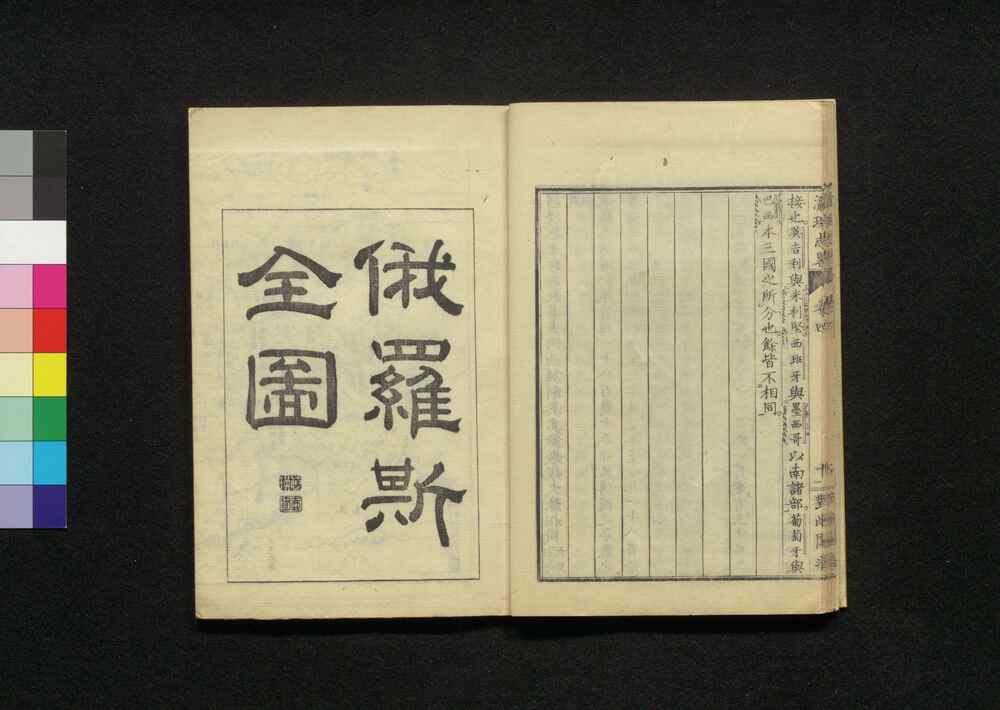 接也英吉利與米利堅西班牙與墨西哥以南諸部葡萄牙與
巴西本三國之所分也餘皆不相同
瀛環志畧
卷四
對嵋閣
俄羅斯
全圖